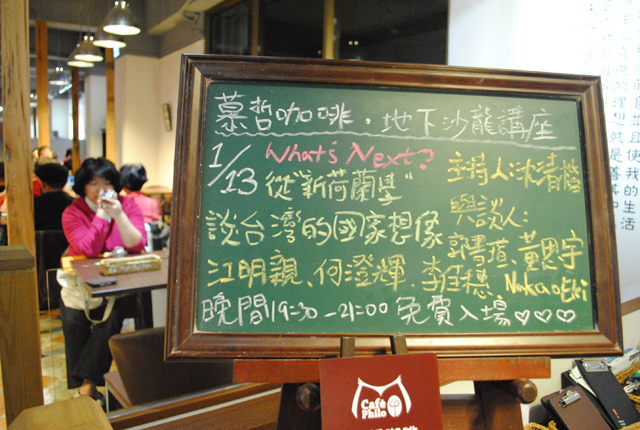 慕哲咖啡．地下沙龍講座
1/13 What's Next?
從"新荷蘭學"
談台灣的國家想像
主持人:沈清楷
與談人:
郭書瑄、黃恩宇
江明親、何澄輝、李佳穗、Naka o Eki
晚間19:30-21:00 免費入場♡♡♡
Café
Philo